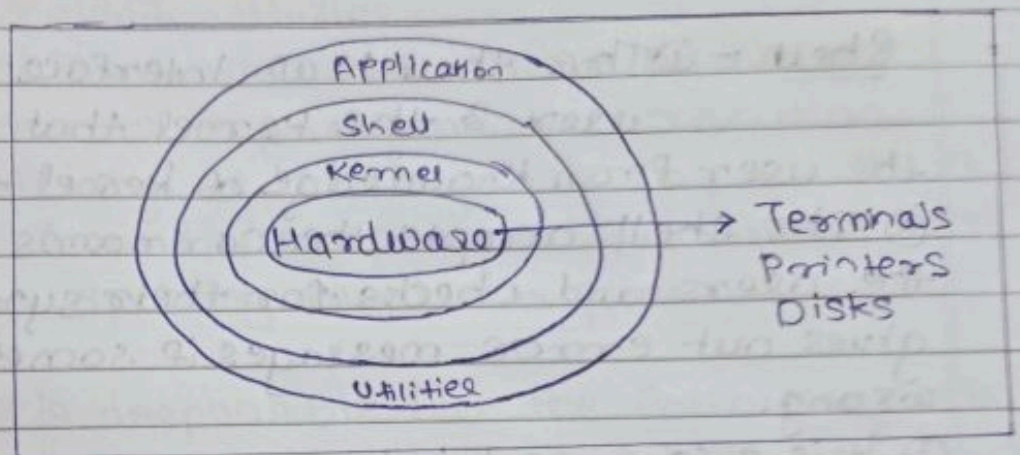 Application
Shell
Kernel
Hardware
Terminals
Printers
Disks
Utilities